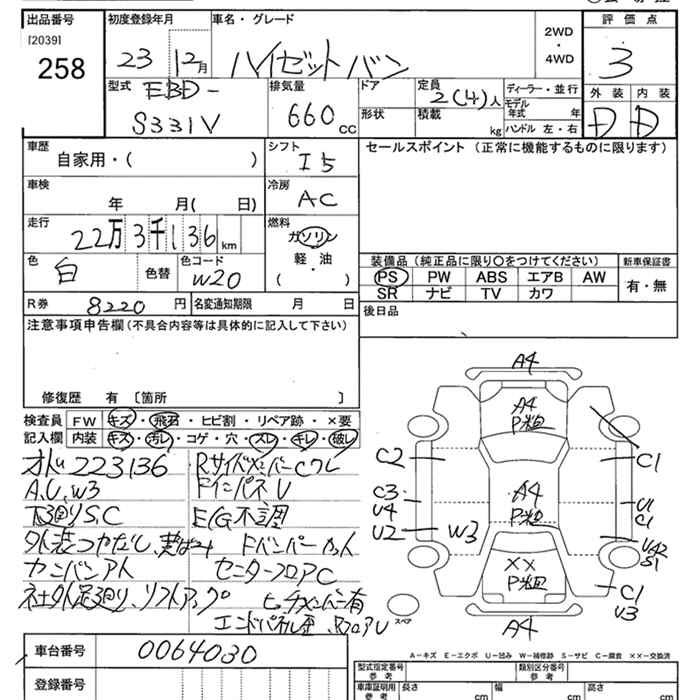 出品番号
[2039]
258
初度登録年月
23 12月
車名・グレード
ハイゼットバン
2WD
・
4WD
評価点
3
型式
EBD-
S331V
排気量
660 CC
ドア
形状
定員
2(4)人
積載
kg
ディーラー・並行
モデル年式 年
ハンドル 左・右
外装 内装
D D
車歴
自家用・( )
シフト
I5
セールスポイント (正常に機能するものに限ります)
車検
年 月( 日)
冷房
AC
走行
22万3千136km
燃料
ガソリン
軽・油
( )
色
白
色替
色コード
W20
装備品(純正品に限り○をつけてください)
PS PW ABS エアB AW
SR ナビ TV カワ
新車保証書
有・無
R券 8220円
名変通知期限 月 日
後日品
注意事項申告欄(不具合内容等は具体的に記入して下さい)
修復歴 有 〔箇所 〕
検査員記入欄
FW キズ・飛石・ヒビ割・リペア跡・×要
内装 キズ・汚レ・コゲ・穴・スレ・キレ・破レ
オドル 223136
A,U,W3
下廻りS.C
カンバンアト
社外足廻り、リフトアップ
E/G不調
Fバンパーカット
センターフロアC
A4
A4
P粗
C2
C1
C3
U4
A4
P粗
U1
C1
U2
W3
UA2
S1
××
P粗
C1
U3
スペア
A4
A−キズ E−エクボ U−凹み W−補修跡 S−サビ C−腐食 XX−交換済
車台番号
0064030
登録番号
型式指定番号
参考
類別区分番号
参考
車庫証明用
参考
長さ
cm
幅
cm
高さ
cm